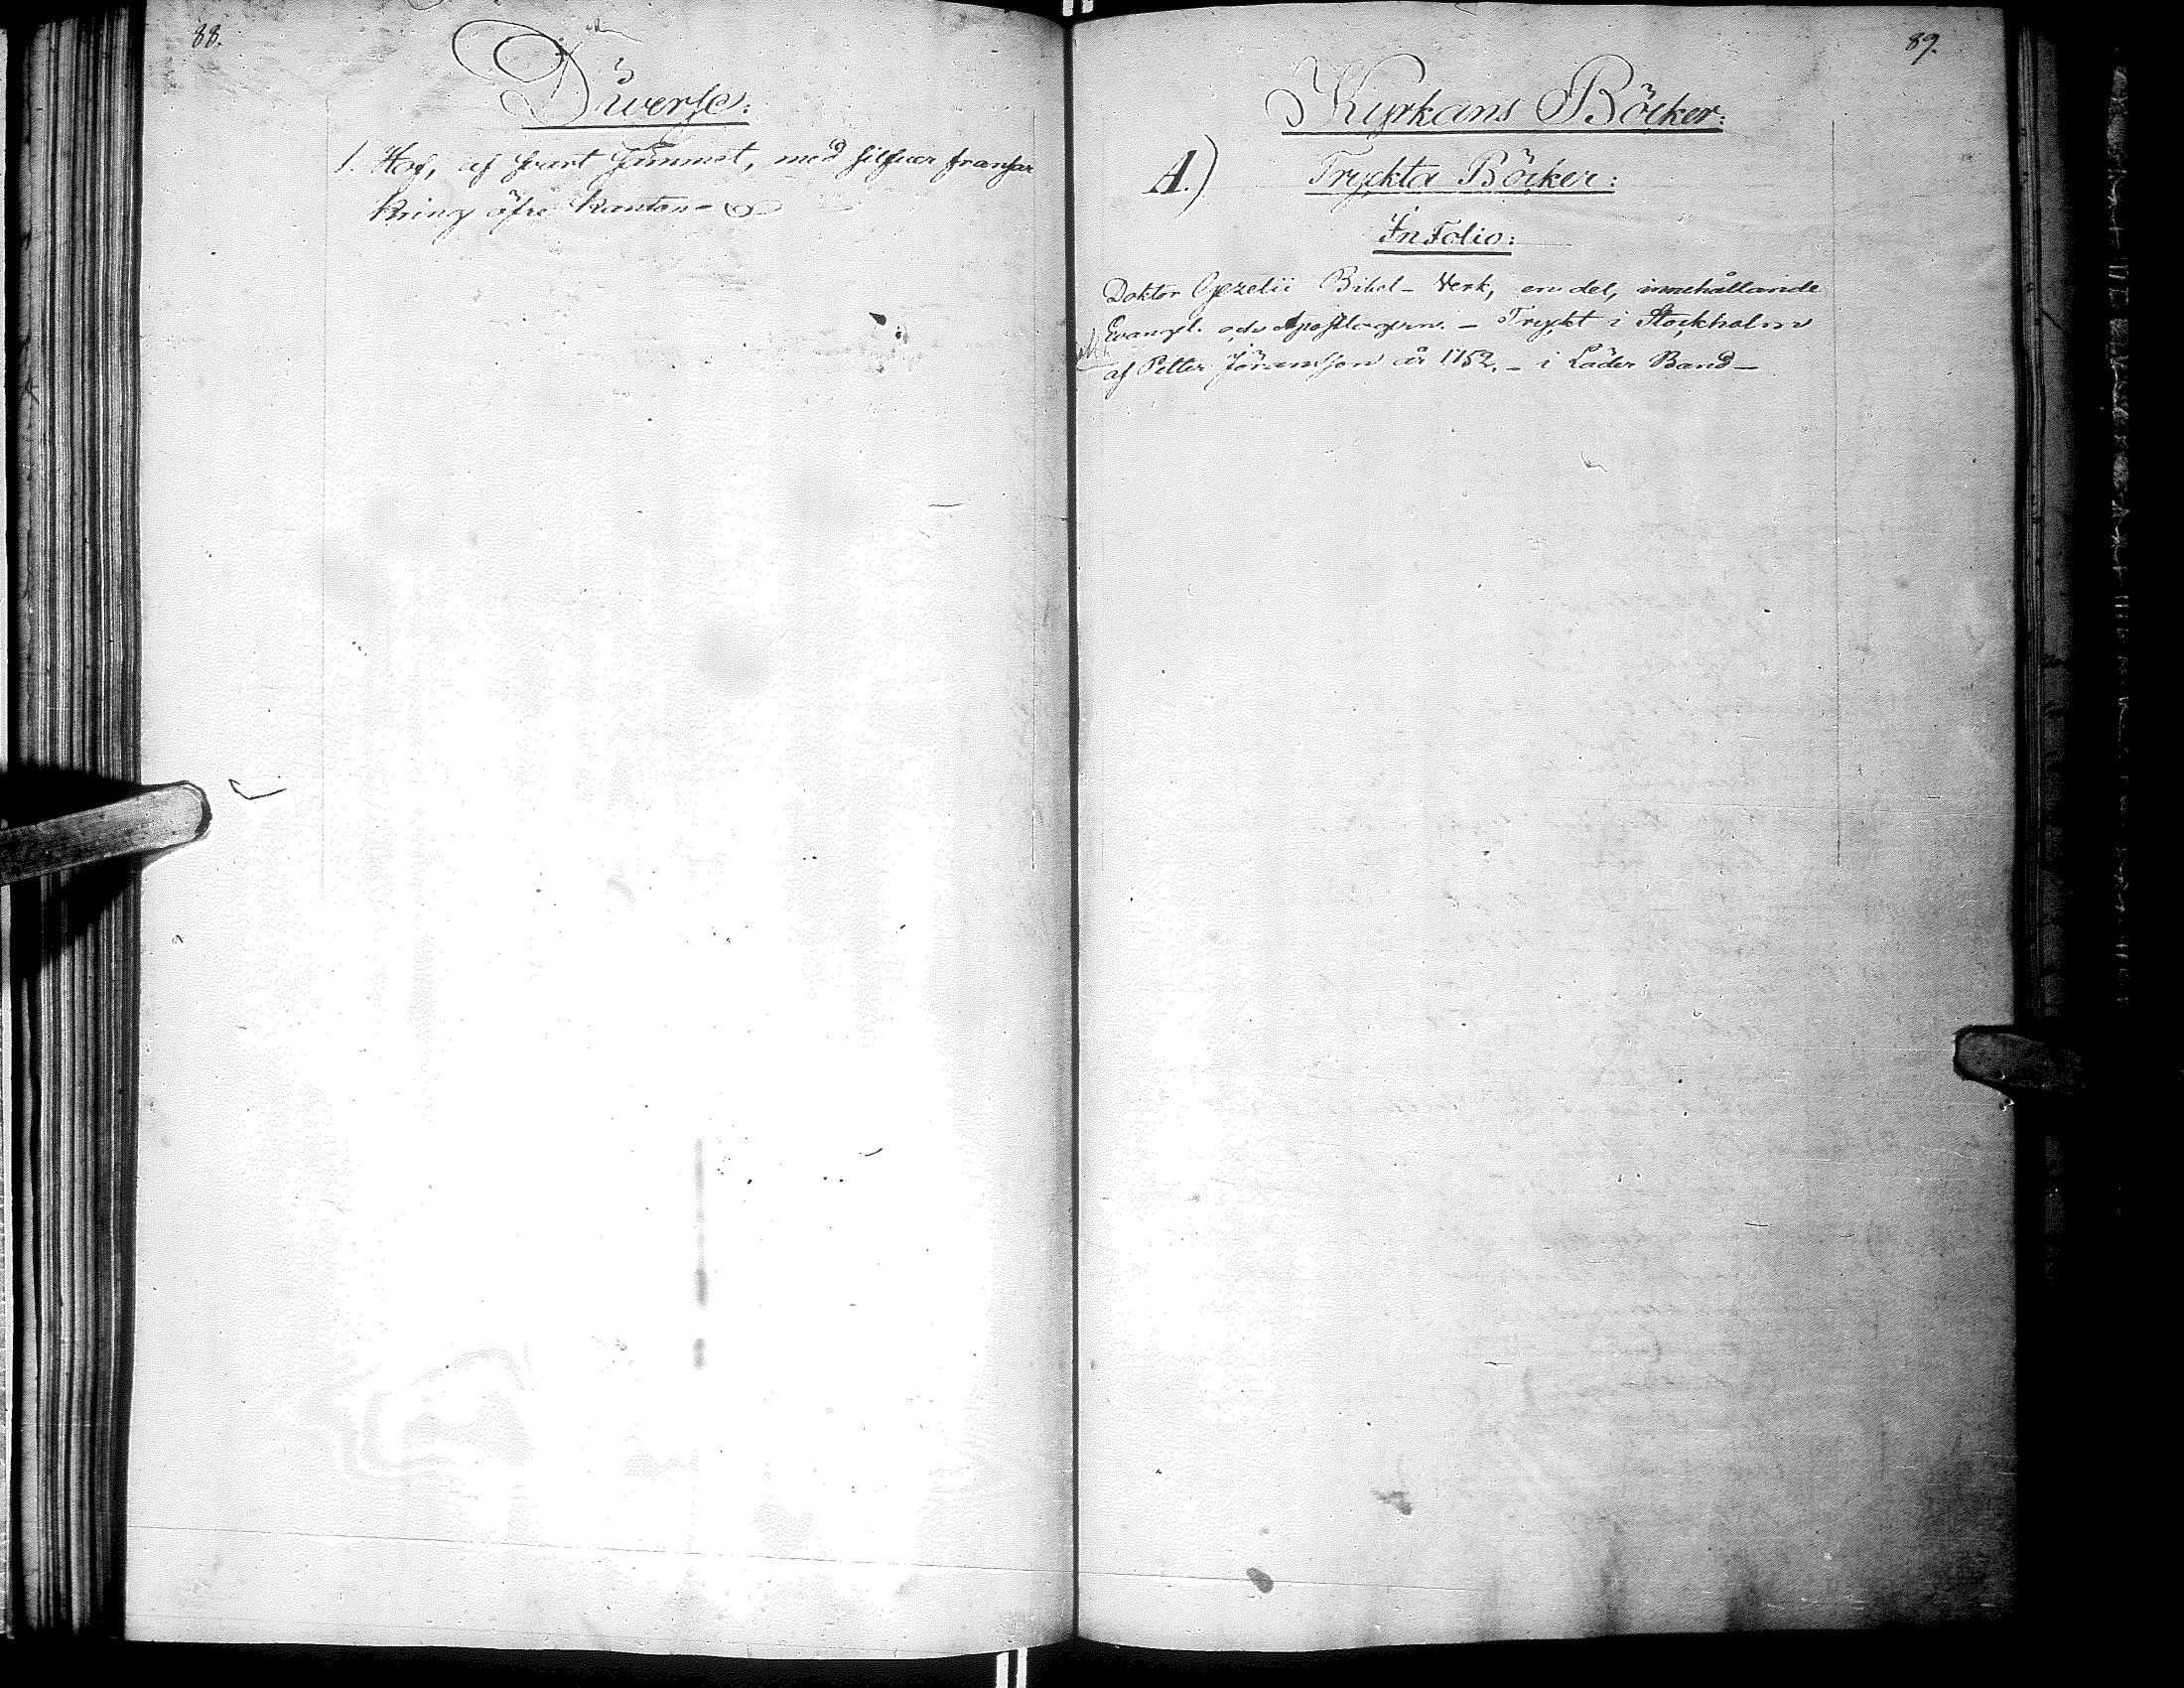 88.
Diverse:
1. Håf, af svart sammet, med silfver fransar
kring öfre kanten -
89.
Kyrkans Böcker:
A.) Tryckta Böcker:
In Folio:
Doktor Gezelii Bibel-Verk, en del, innehållande
Evangel. och Apostlagern. - Tryckt i Stockholm
af Petter Jöransson år 1752. - i Läder Band -